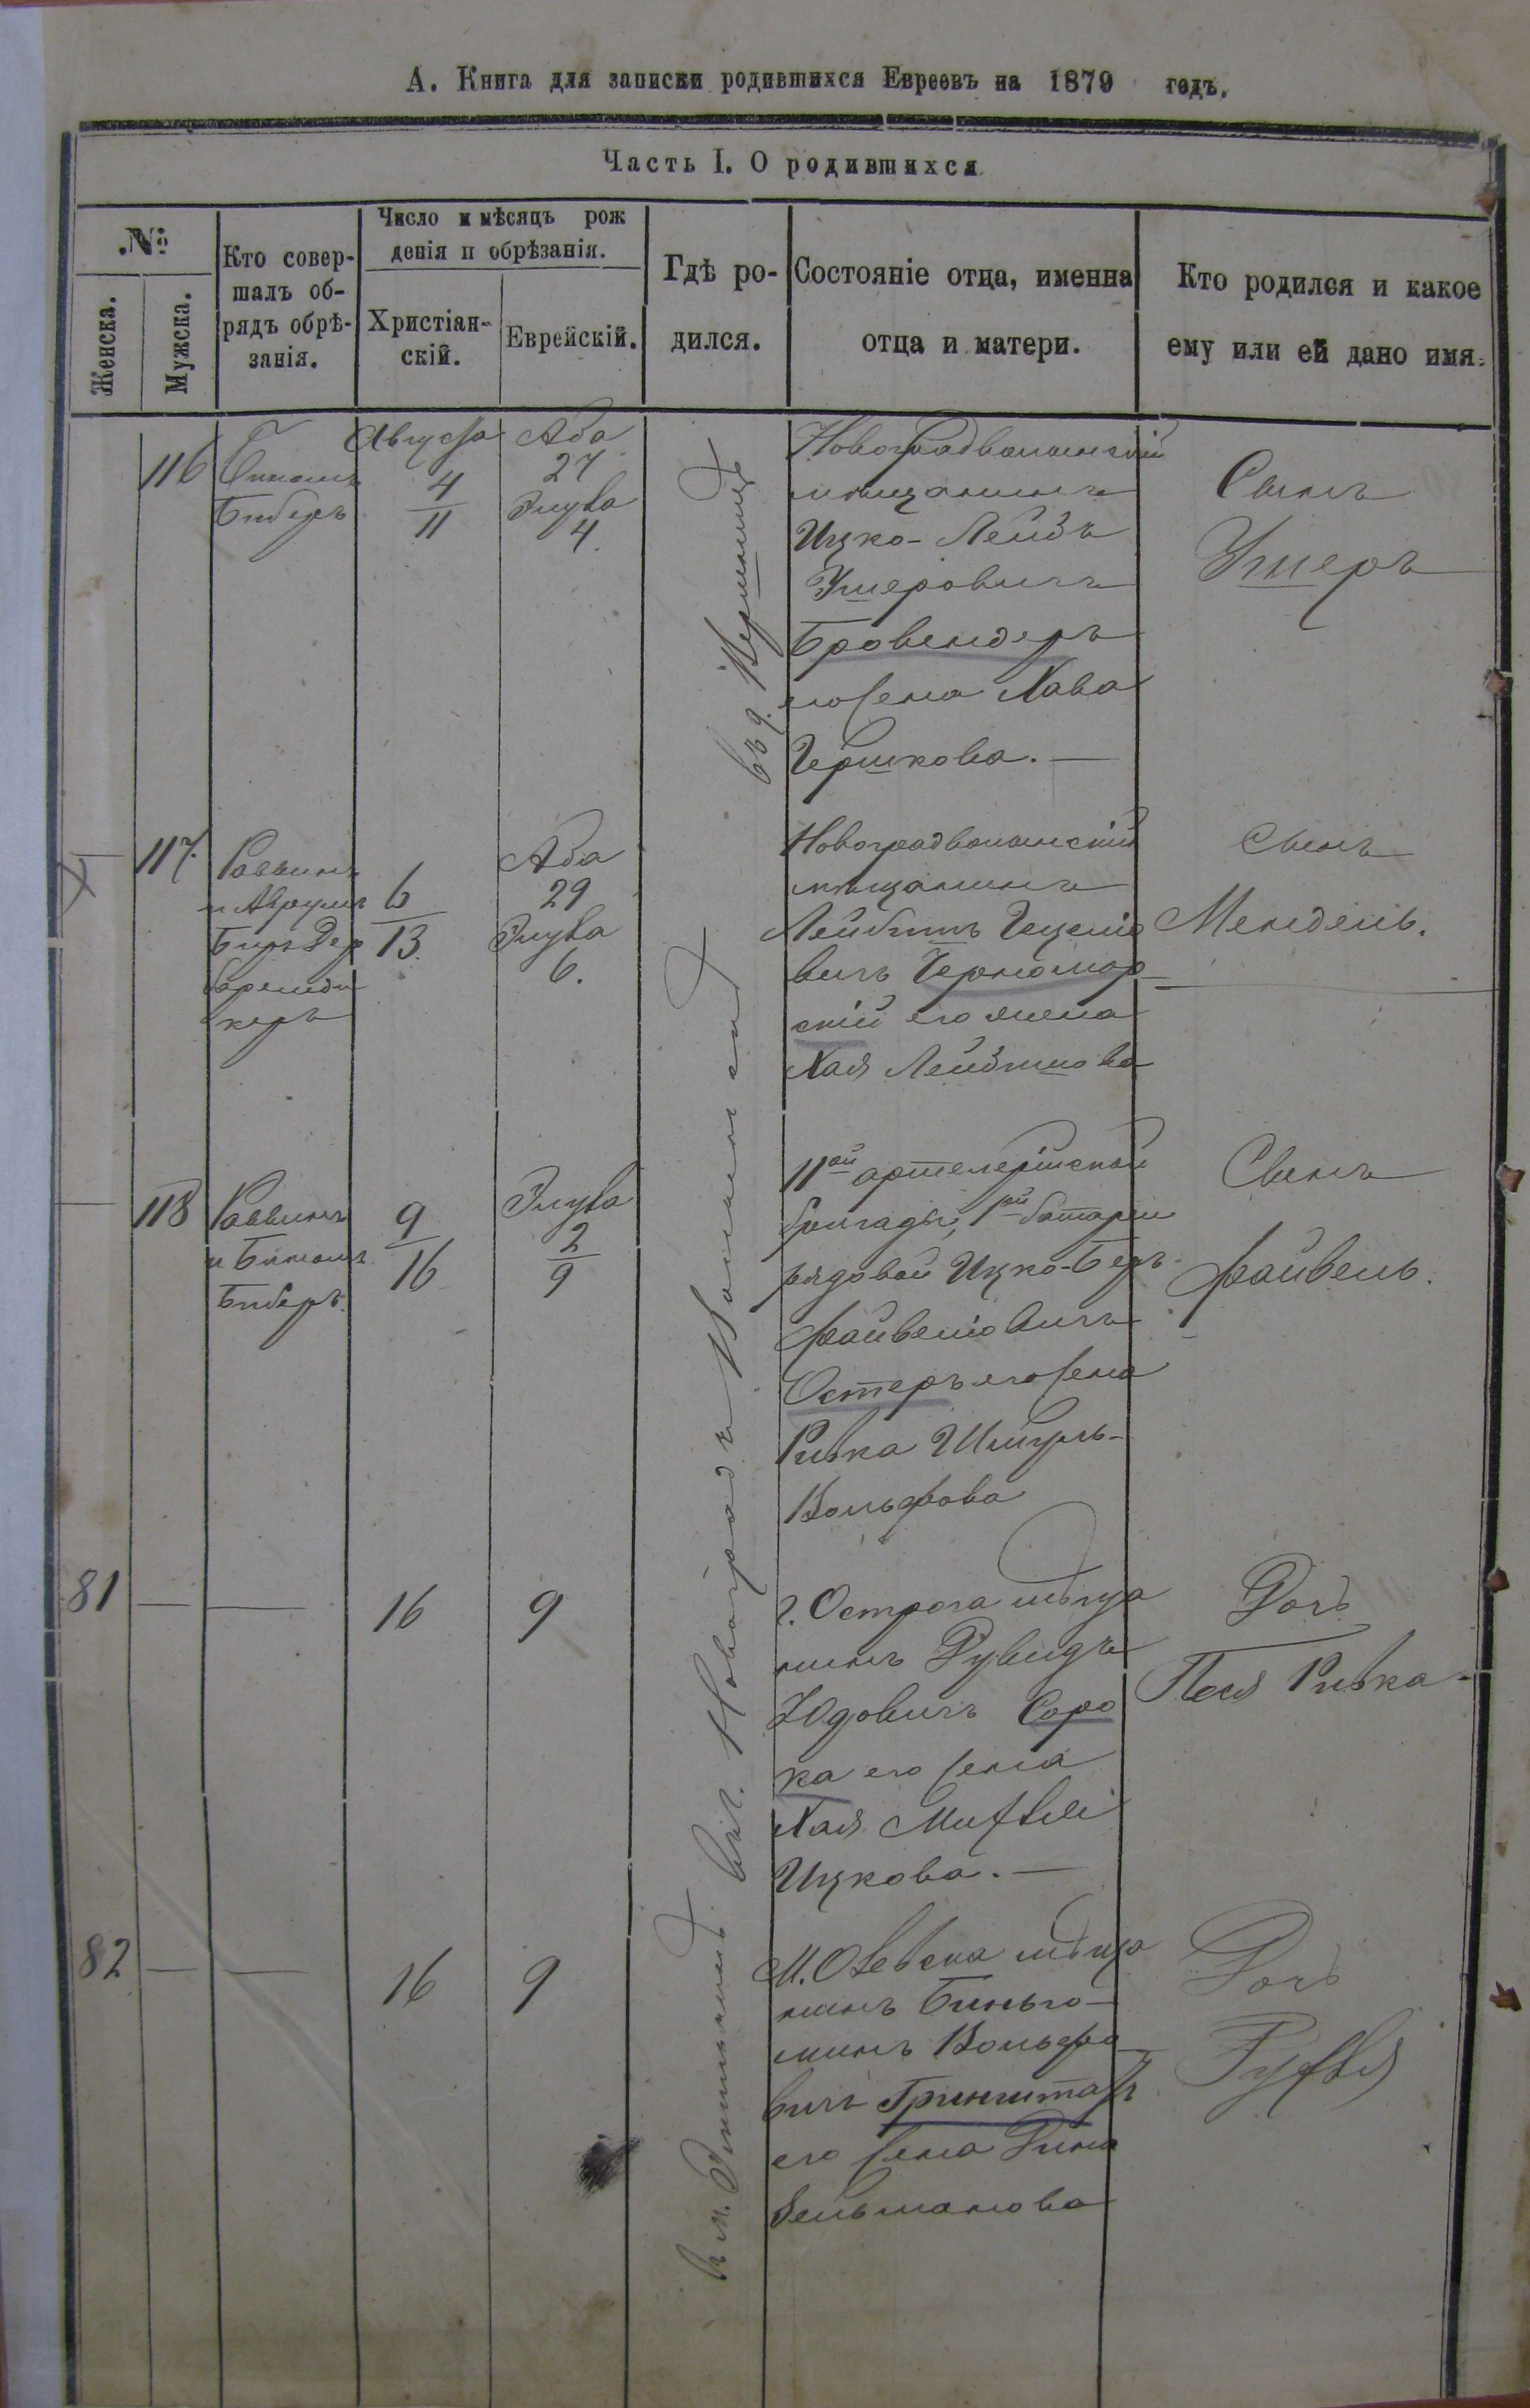 А. Книга для записки родившихся Евреевъ на 1879 годъ.
Часть I. О родившихся
№
Женска.
Мужска.
Кто совер-
шалъ об-
рядъ обрѣ-
занія.
Число и мѣсяцъ рож
денія и обрѣзанія.
Христіан-
скій.
Еврейскій.
Гдѣ ро-
дился.
Состояніе отца, именна
отца и матери.
Кто родился и какое
ему или ей дано имя.
116
Биберъ
Августа
4
11
Ава
27
Элула
4.
Новоградволынскій
мѣщанинъ
Ицко-Лейбъ
Ушеровичъ
Бровендеръ
его жена Хава
Гершкова.
Сынъ
Ушеръ
117.
Раввинъ
и Аврумъ
6
13.
Ава
29
Элула
6.
Новоградволынскій
мѣщанинъ
Лейбишъ
вичъ Черномор-
скій его жена
Хая Лейбишова
Сынъ
Мендель.
118
Раввинъ
Биберъ.
9
16
Элула
2
9
11ой артелерійской
бригады, 1ой батареи
рядовой Ицко-Беръ
Файвелiовичъ
Остеръ его жена
Ривка Шмуль-
Вольфова
Сынъ
Файвель.
въ г. Новоградъ Волынскѣ
81
16
9
г. Острога мѣща
нинъ
Юдовичъ Соро
ка его жена
Хая
Ицкова.
Дочь
Песя Ривка
82
16
9
М. Олевска мѣща
нинъ Бинью-
минъ Вольфо
вичъ Гринштей
его жена Дина
Зельманова
Дочь